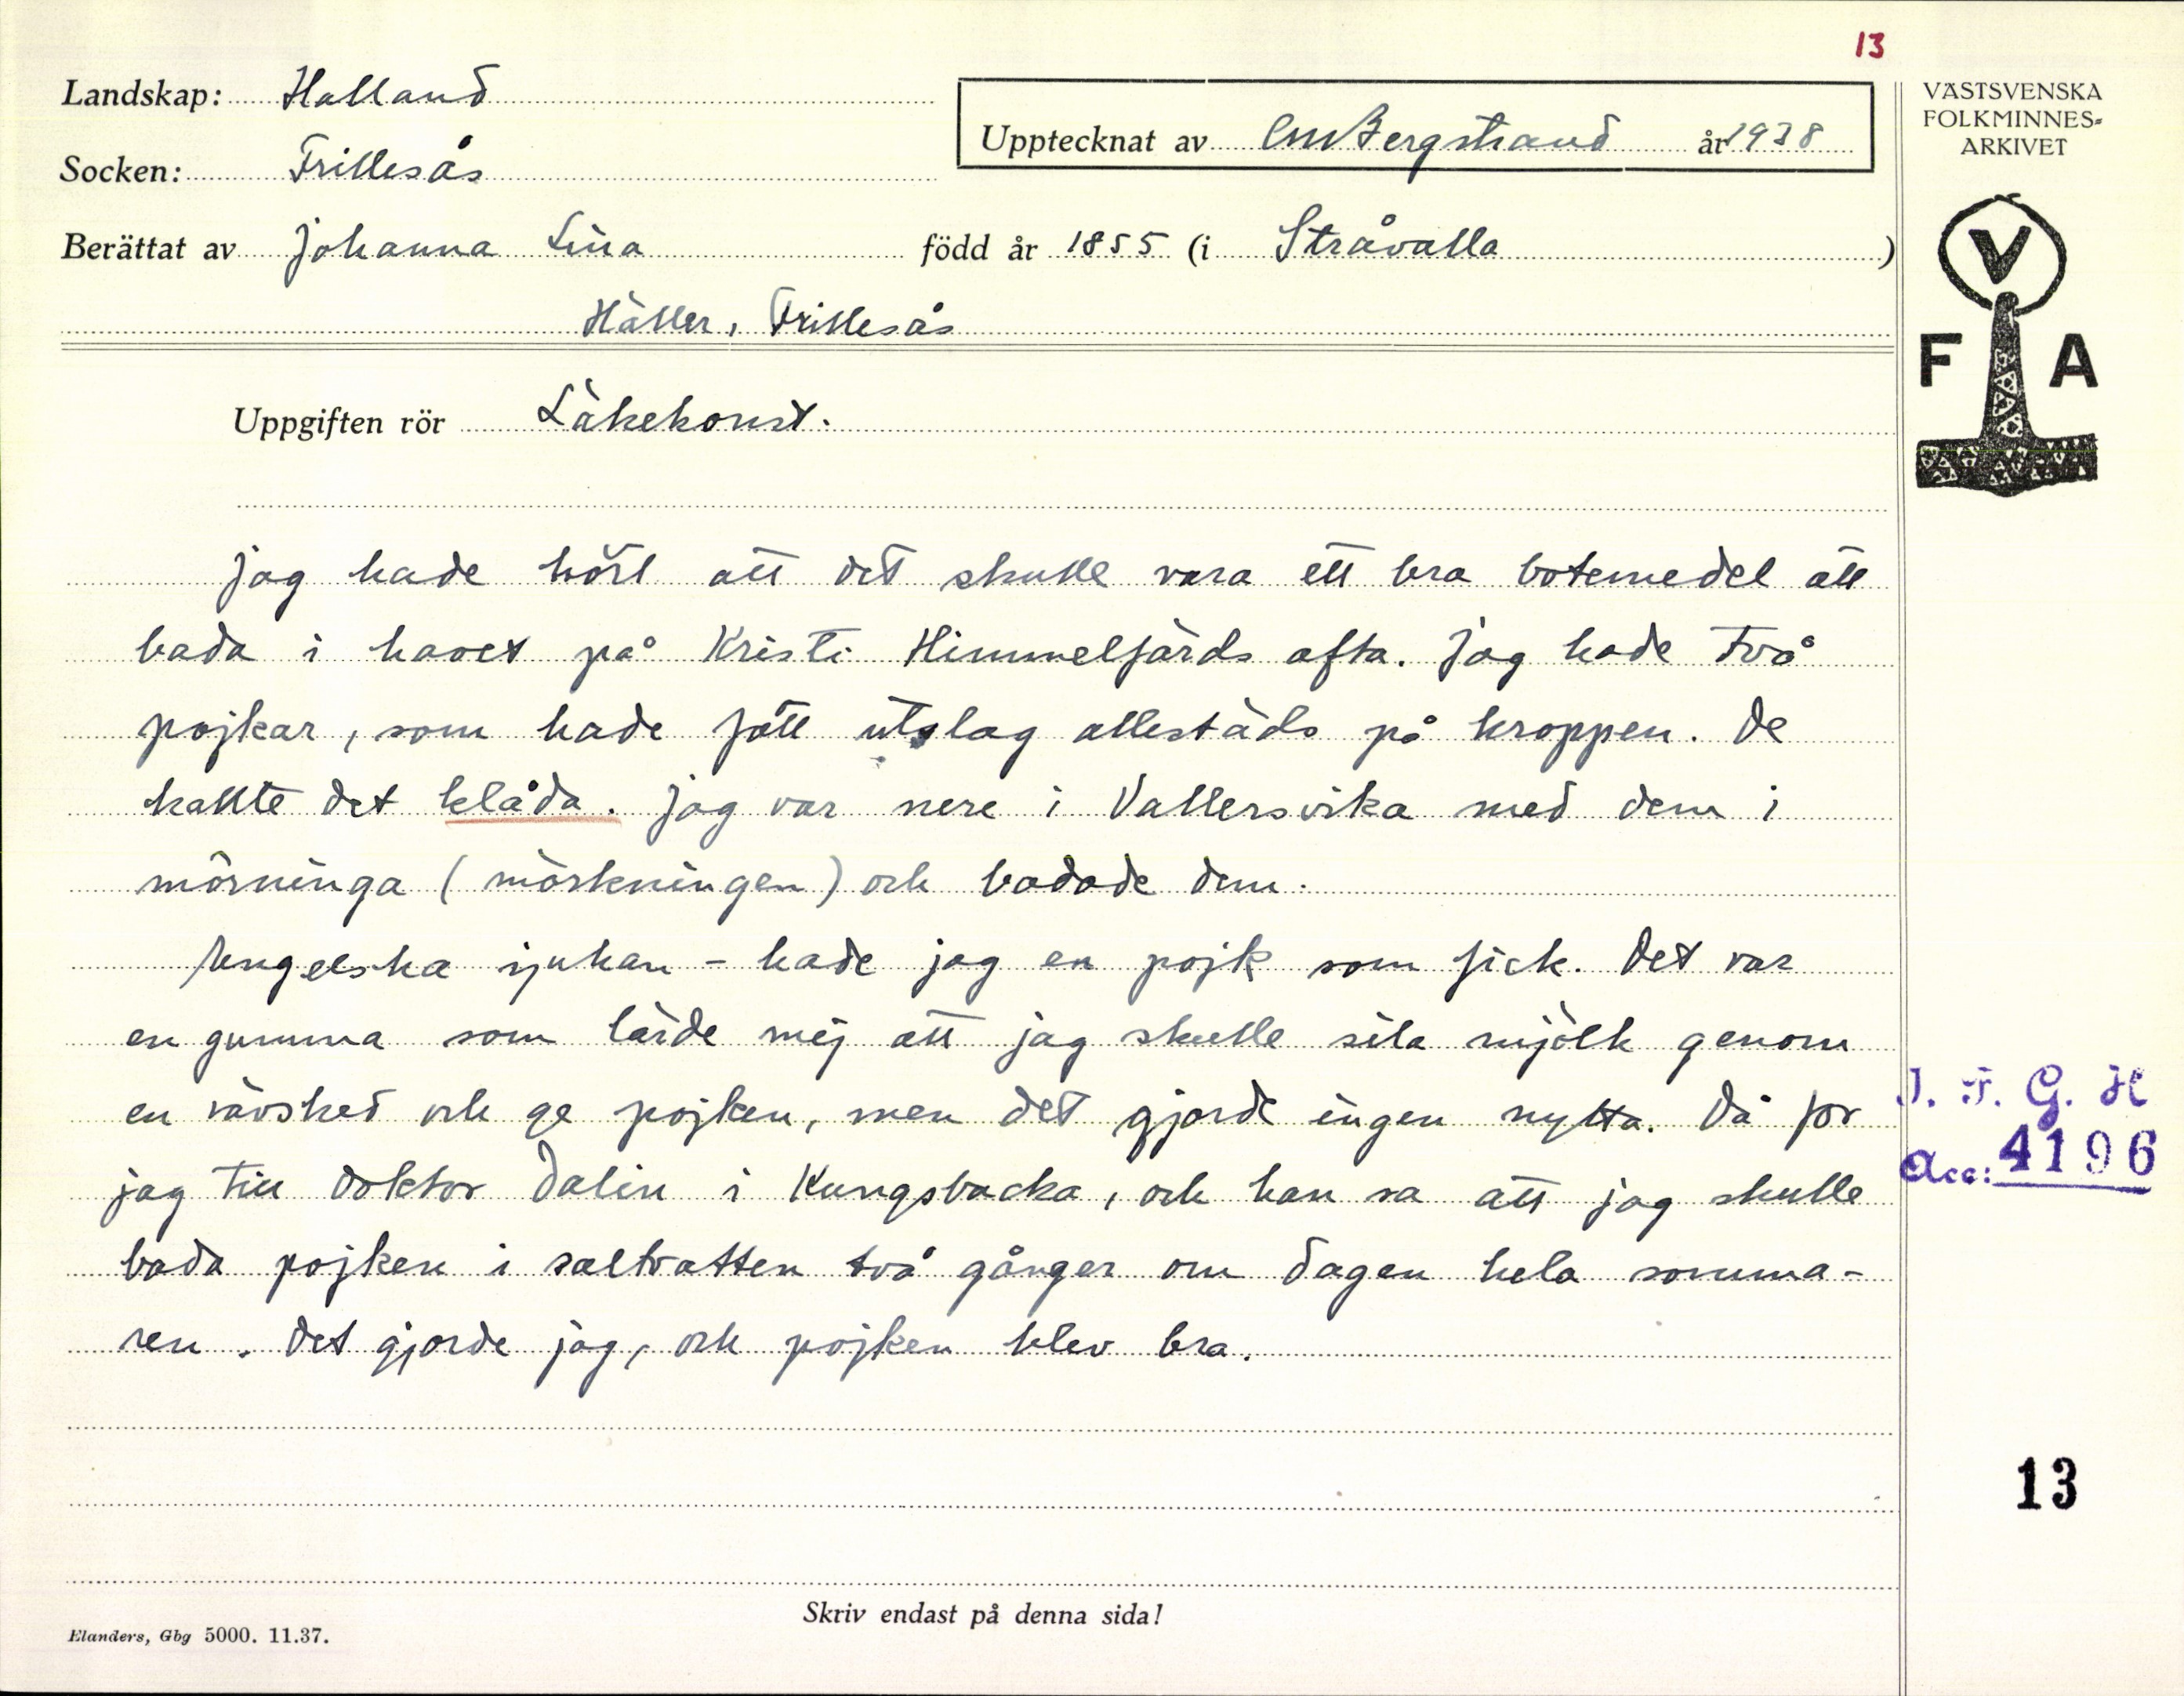 13
Landskap: Halland
Socken: Frillesås
Upptecknat av CM Bergstrand år 1938
Berättat av Johanna Lina född år 1855 (i Stråvalla)
Häller, Frillesås
VÄSTSVENSKA
FOLKMINNES-
ARKIVET
V
F A
Uppgiften rör Läkekonst.
Jag hade hört att det skulle vara ett bra botemedel att
bada i havet på Kristi Himmelfärds afta. Jag hade två
pojkar, som hade fått utslag allestäds på kroppen. De
kallte det klåda. Jag var nere i Vallersvika med dem i
mörninga (mörkningen) och badade dem.
Engelska sjukan - hade jag en pojk som fick. Det var
en gumma som lärde mej att jag skulle sila mjölk genom
en vävsked och ge pojken, men det gjorde ingen nytta. Då for
jag till doktor Dalin i Kungsbacka, och han sa att jag skulle
bada pojken i saltvatten två gånger om dagen hela somma-
ren. Det gjorde jag, och pojken blev bra.
I. F. G. H
Acc: 4196
13
Skriv endast på denna sida!
Elanders, Gbg 5000. 11.37.